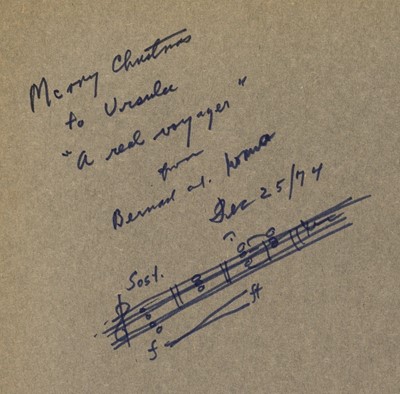 Merry Christmas
to Ursula
"A real voyager"
from
Bernard
Dec 25/74
Sost.
f ff